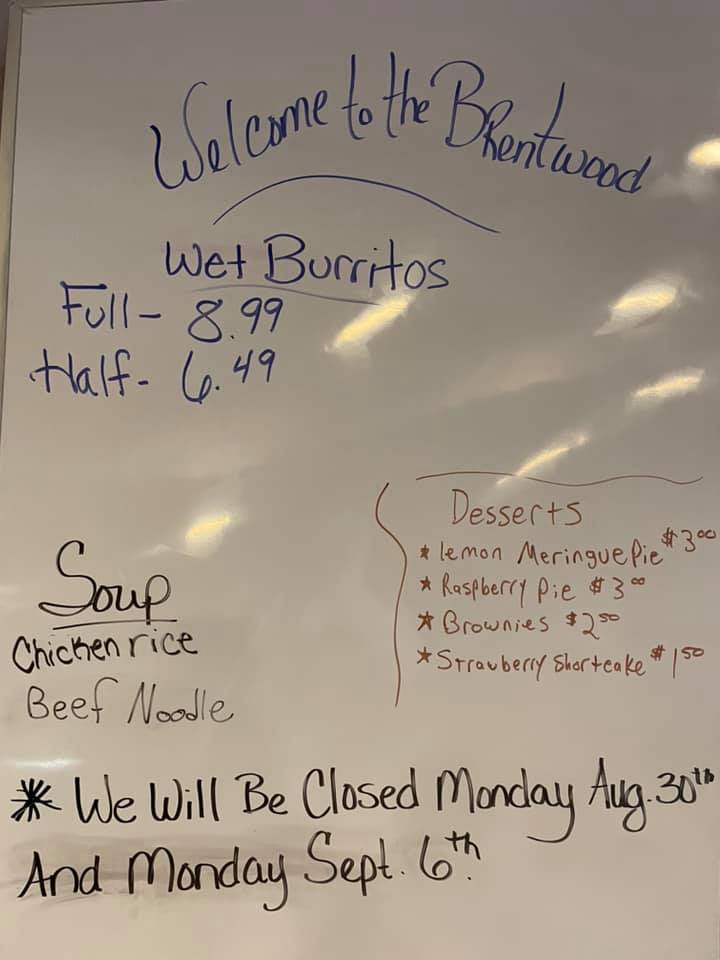 Welcome to the Brentwood
Wet Burritos
Full - 8.99
Half - 6.49
Desserts
* lemon Meringue Pie $3.00
* Raspberry Pie $3.00
* Brownies $2.50
* Strawberry Shortcake $1.50
Soup
Chicken rice
Beef Noodle
* We Will Be Closed Monday Aug. 30th
And Monday Sept. 6th.